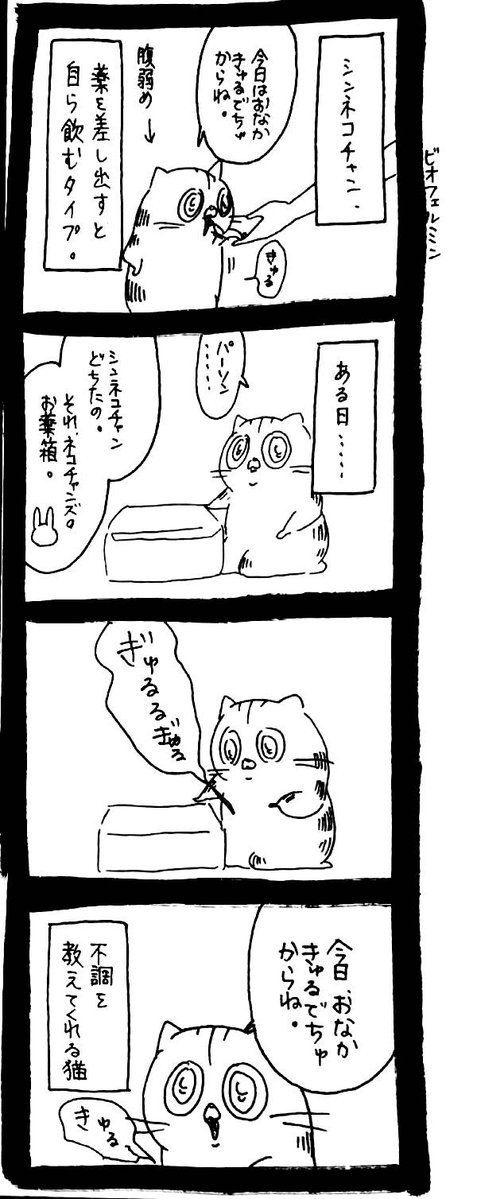 シンネコチャン、
ビオフェルミン
今日はおなか
きゅるでちゅ
からね。
腹弱め→
薬を差し出すと
自ら飲むタイプ。
きゅる
ある日……
パーソン
……
シンネコチャン
どちたの。
それ、ネコチャンズの
お薬箱。
ぎゅるるぎゅる
今日、おなか
きゅるでちゅ
からね。
不調を
教えてくれる猫
きゅる